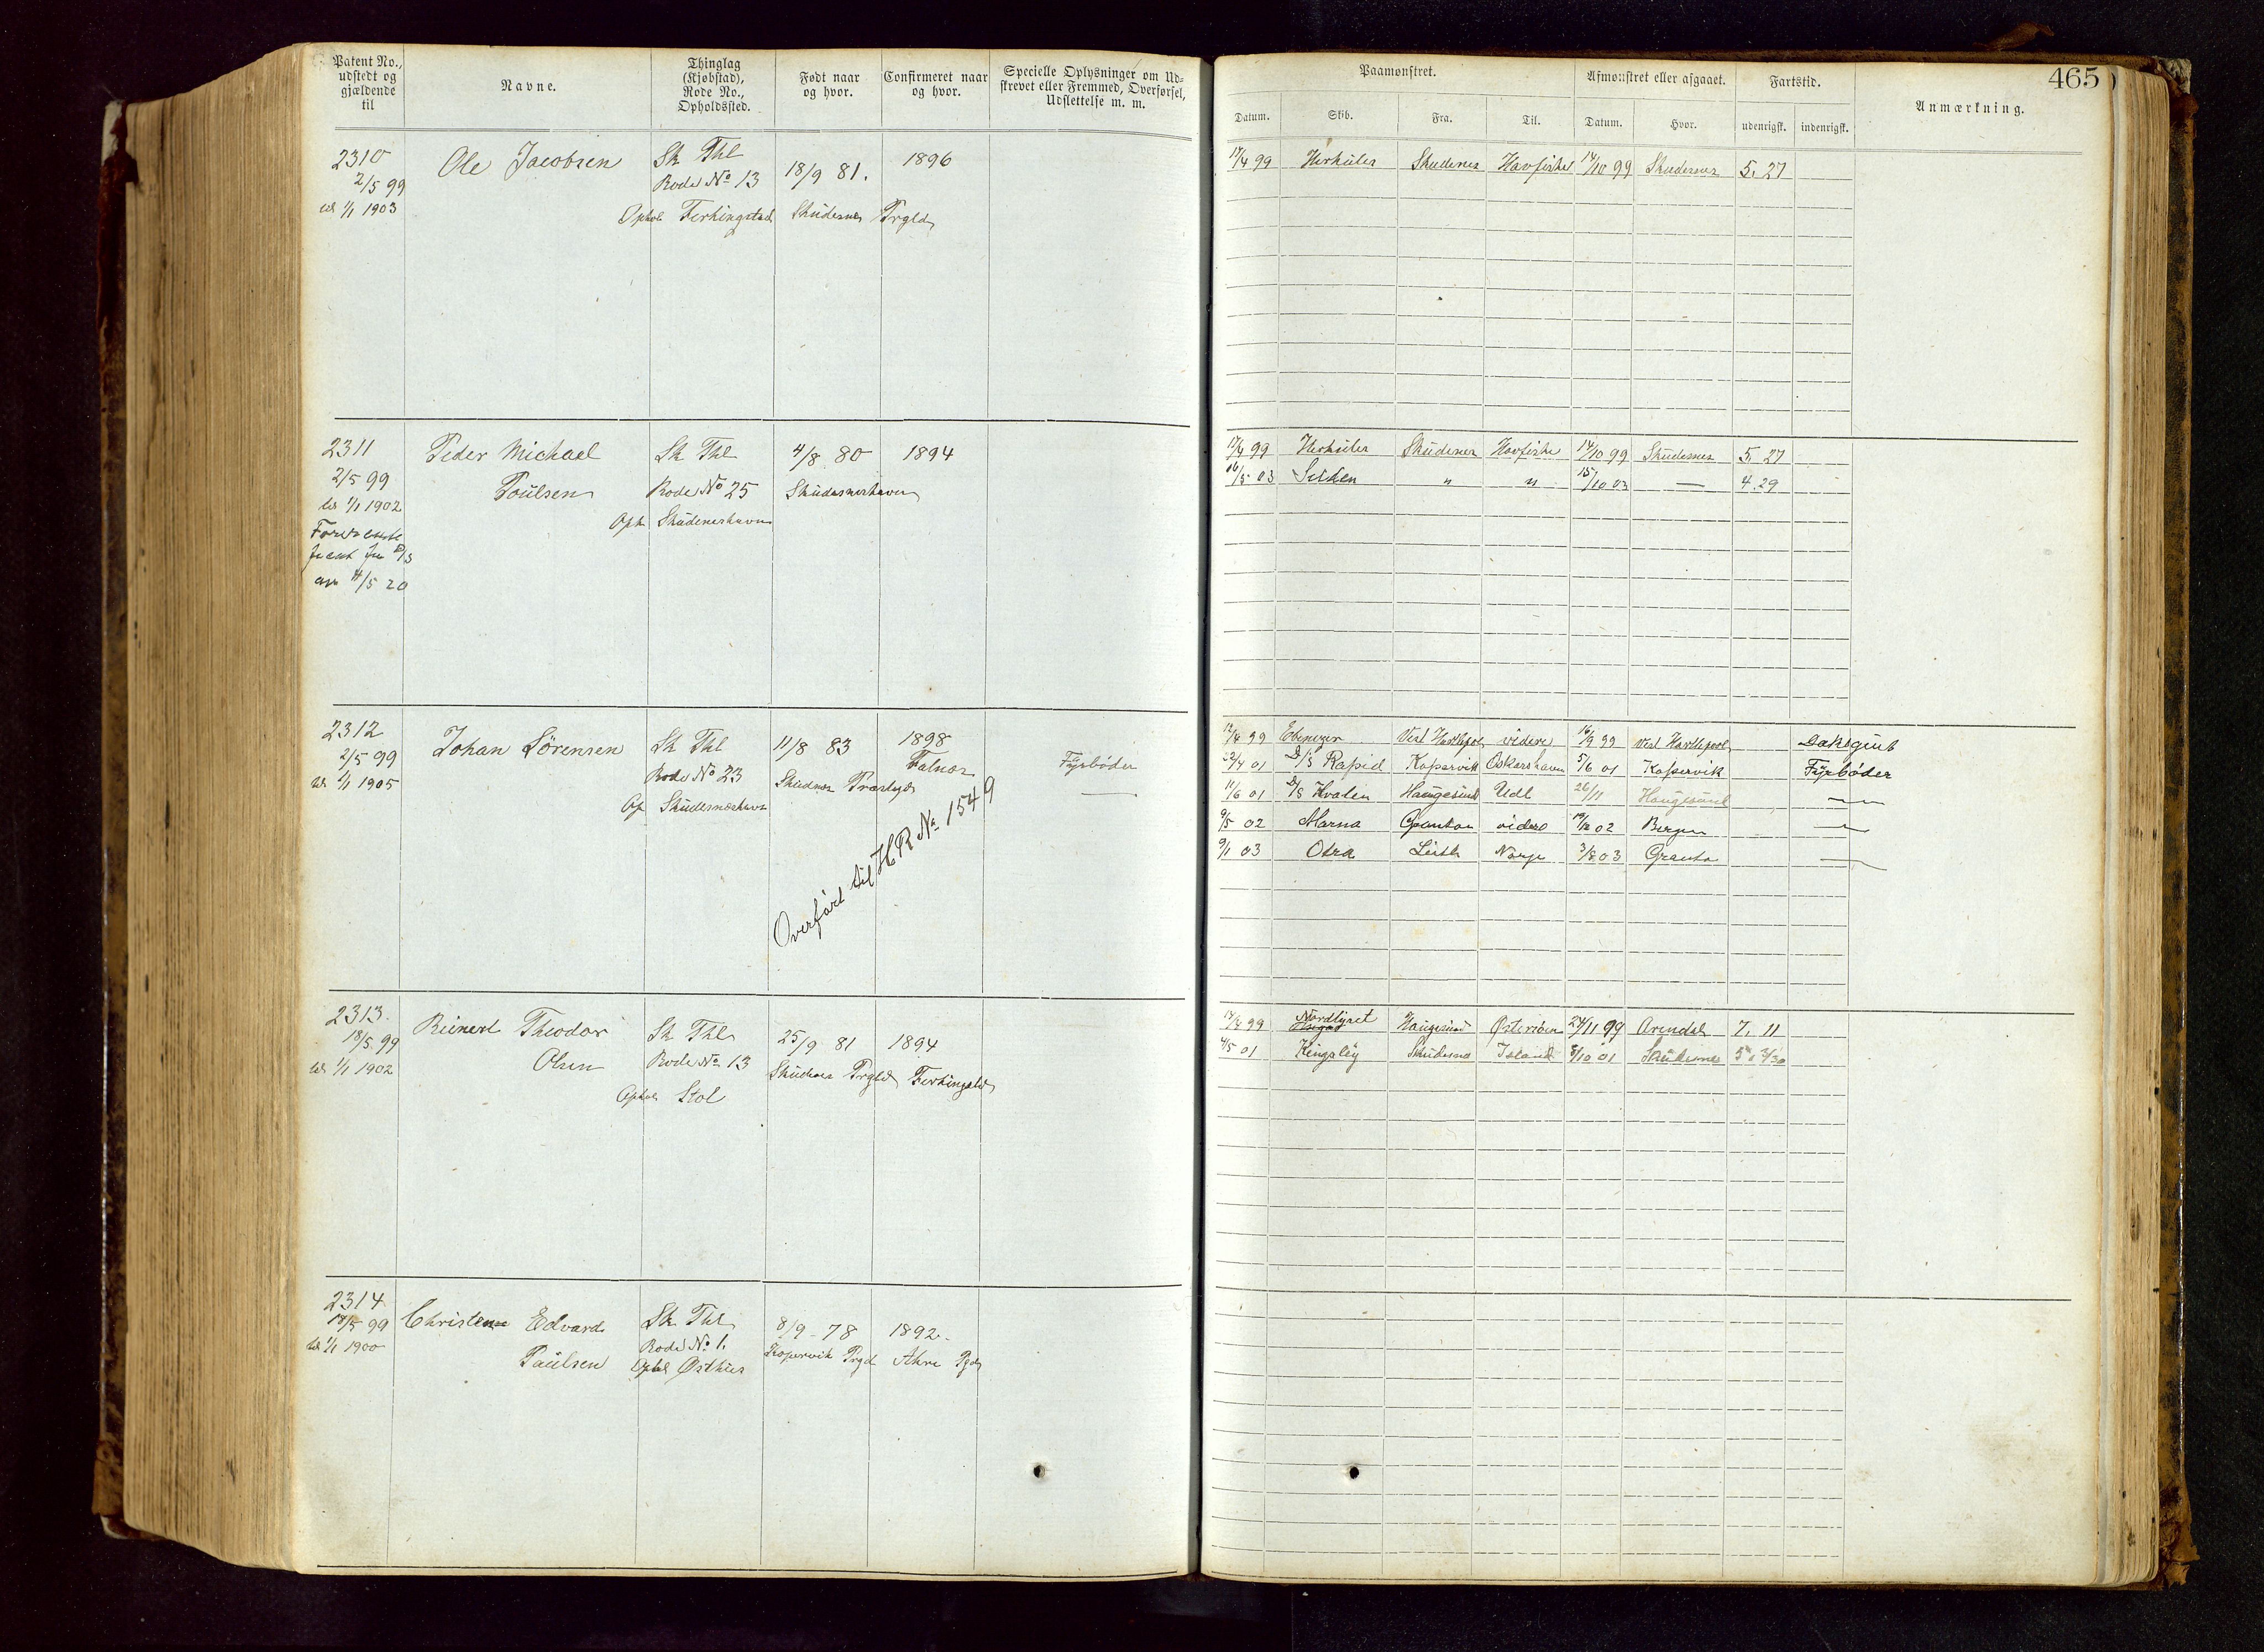 Patent No., udstedt og gjældende til
Navne.
Thinglag (Kjøbstad), Rode No., Opholdssted.
Født naar og hvor.
Confirmeret naar og hvor.
Specielle Oplysninger om Udskrevet eller Fremmed, Overførsel, Udslettelse m. m.
Paamønstret.
Afmønstret eller afgaaet.
Fartstid.
Anmærkning.
465
Datum. Skib. Fra. Til. Datum. Hvor. udenrigsk. indenrigsk.
2310 Ole Jacobsen Sk Thl 18/9 81. 1896
2/5 99 Rode No 13
til 1/1 1903 Ophol Ferkingstad Skudesnes Prgld
17/4 99 Herkules Skudenes Havfiske 14/10 99 Skudesnes 5. 27
2311 Peder Michael Sk Thl 4/8 80 1894
2/5 99 Poulsen Rode No 25 Skudesneshavn
til 1/1 1902 Oph Skudeneshavn
4/5 20
17/4 99 Herkules Skudenes Havfiske 14/10 99 Skudesnes 5. 27
16/5 03 Silden " " 15/10 03 — 4. 29
2312 Johan Sörensen Sk Thl 11/8 83 1898 Fyrbøder
2/5 99 Rode No 23 Skudnes Præstgd Falnæs —
til 1/1 1905 Op Skudesneshavn
Overført til HR No 1549
12/4 99 Ebenezer Vest Hartlepol videre 16/9 99 Vest Hartlepool Dæksgut
22/4 01 D/S Rapid Kopervik Oskarshavn 5/6 01 Kopervik Fyrbøder
11/6 01 D/S Hvalen Haugesund Udl 26/11 Haugesund —
9/5 02 Marna Granton videre 19/12 02 Bergen —
9/1 03 Otra Leith Norge 3/8 03 Granto —
2313. Reinert Theodor Sk Thl 25/9 81 1894
18/5 99 Olsen Rode No 13 Skudnes Prgld Ferkingstd
til 1/1 1902 Ophol Stol
Nordlyset Haugesund Østerisøen 24/11 99 Arendal 7. 11
4/5 01 Kingsley Skudesnes Island 8/10 01 Skudesnes
2314 Christen Edvard Sk Thl 8/9 - 78 1892.
18/5 99 Paulsen Rode No 1. Kopervik Prgd Akre Pgd
til 1/1 1900 Ophl Østhus